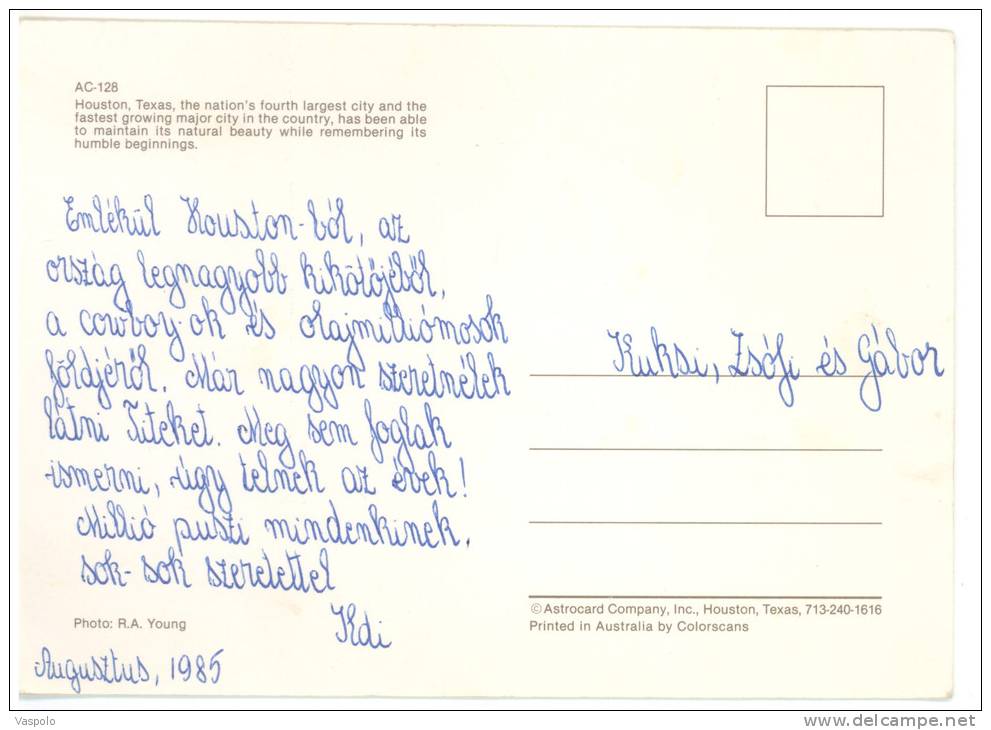 AC-128
Houston, Texas, the nation's fourth largest city and the
fastest growing major city in the country, has been able
to maintain its natural beauty while remembering its
humble beginnings.
Emlékül Houston-ból, az
ország legnagyobb kikötőjéből,
a cowboy-ok és olajmilliómosok
földjéről. Már nagyon szeretnélek
látni Titeket. Meg sem foglak
ismerni, úgy telnek az évek!
Millió puszi mindenkinek,
sok-sok szeretettel
Kdi
Augusztus, 1985
Kuksi, Zsófi és Gábor
Photo: R.A. Young
©Astrocard Company, Inc., Houston, Texas, 713-240-1616
Printed in Australia by Colorscans
Vaspolo
www.delcampe.net